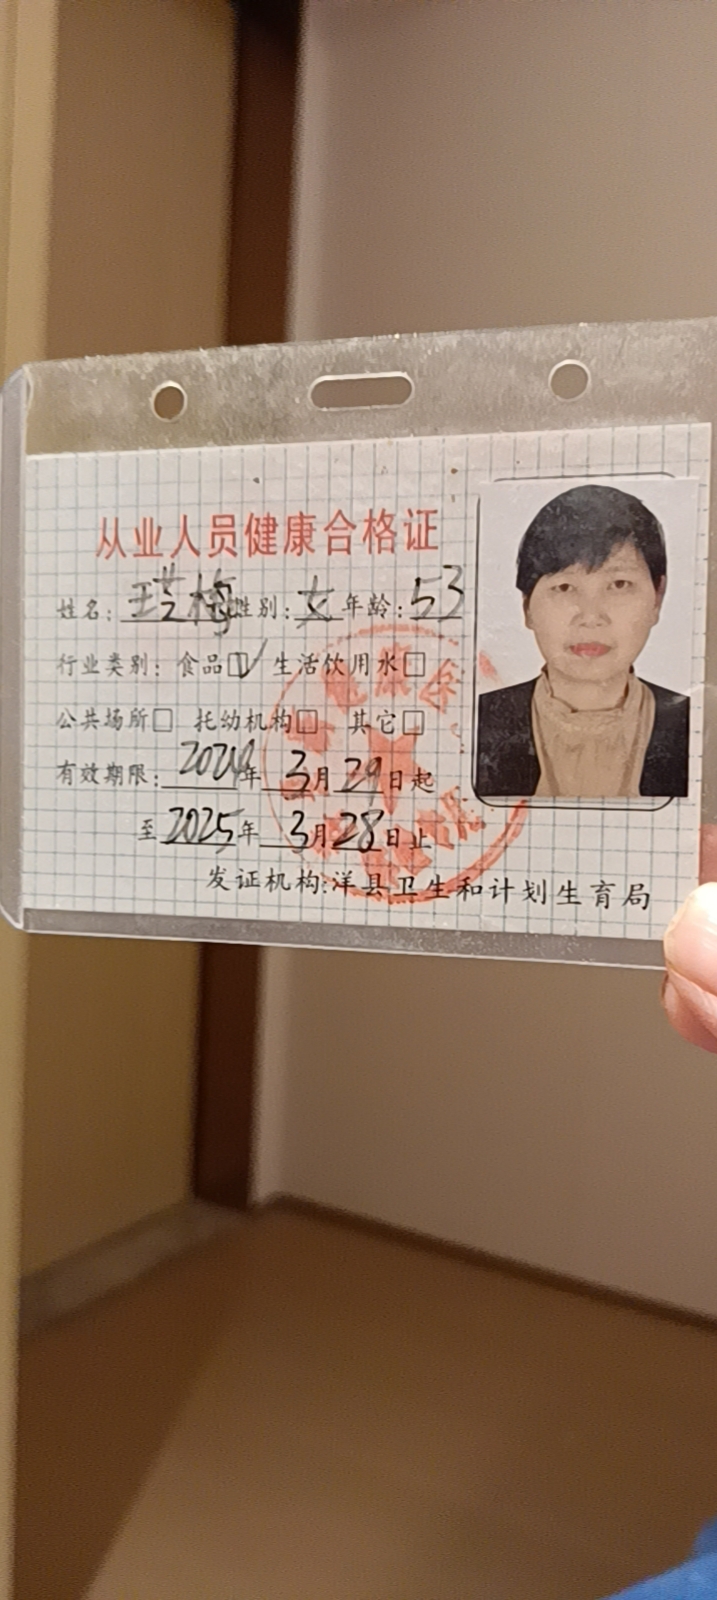 从业人员健康合格证
姓名：王芸梅 性别：女 年龄：53
行业类别：食品☑ 生活饮用水□
公共场所□ 托幼机构□ 其它□
有效期限：2024年3月29日起
至2025年3月28日止
发证机构：洋县卫生和计划生育局